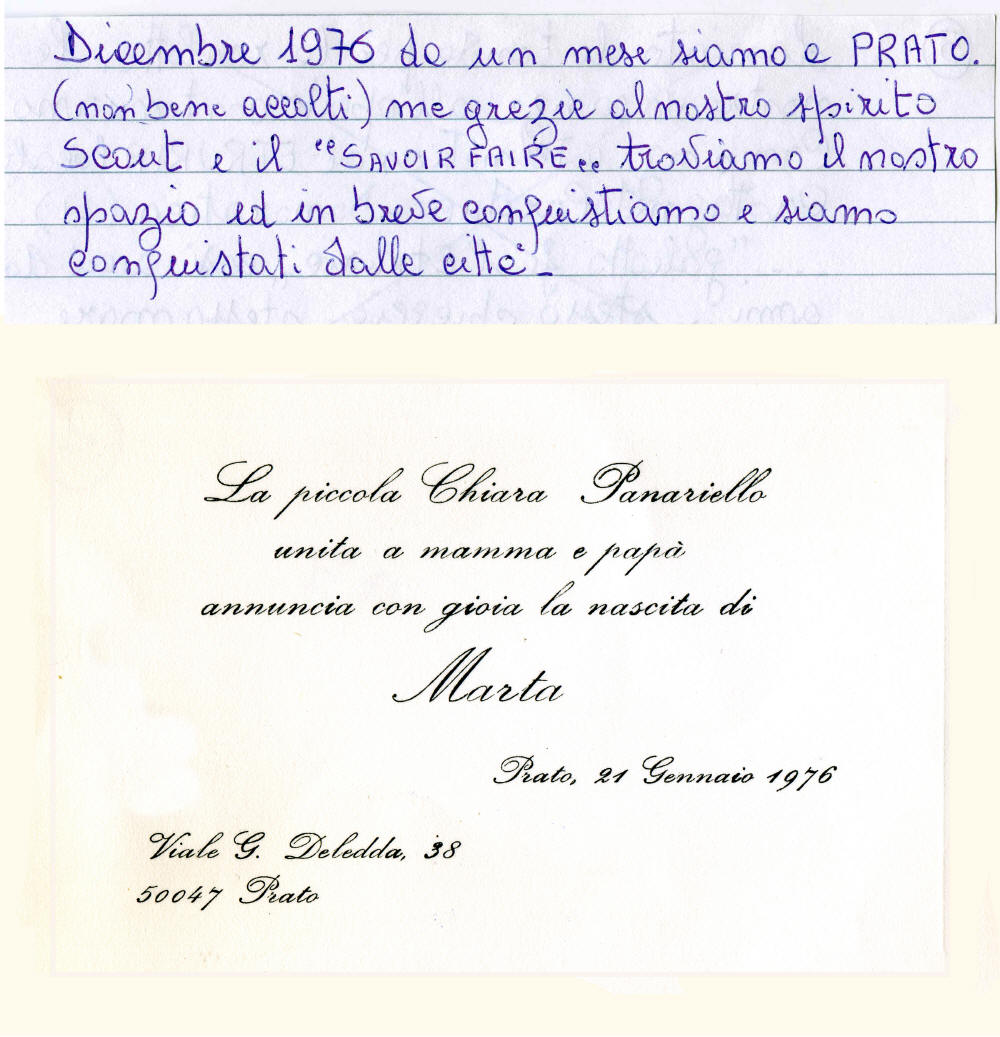 Dicembre 1976 da un mese siamo a PRATO.
(non bene accolti) ma grazie al nostro spirito
Scout e il "SAVOIR FAIRE" troviamo il nostro
spazio ed in breve conquistiamo e siamo
conquistati dalla città -
La piccola Chiara Panariello
unita a mamma e papà
annuncia con gioia la nascita di
Marta
Prato, 21 Gennaio 1976
Viale G. Deledda, 38
50047 Prato